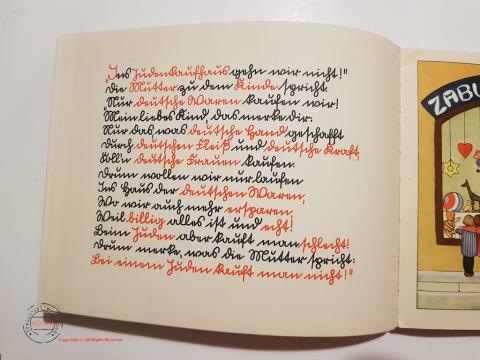 „Ins Judenkaufhaus gehn wir nicht!"
Die Mutter zu dem Kinde spricht.
„Nur deutsche Waren kaufen wir!
Mein liebes Kind, das merke dir:
Nur das, was deutsche Hand geschafft
Durch deutschen Fleiß und deutsche Kraft,
Soll'n deutsche Frauen kaufen.
Drum wollen wir nur laufen
Ins Haus der deutschen Waren,
Wo wir auch mehr ersparen,
Weil billig alles ist und echt!
Beim Juden aber kauft man schlecht!
Drum merke, was die Mutter spricht:
Bei einem Juden kauft man nicht!"
ZABU
Copyright © All Rights Reserved